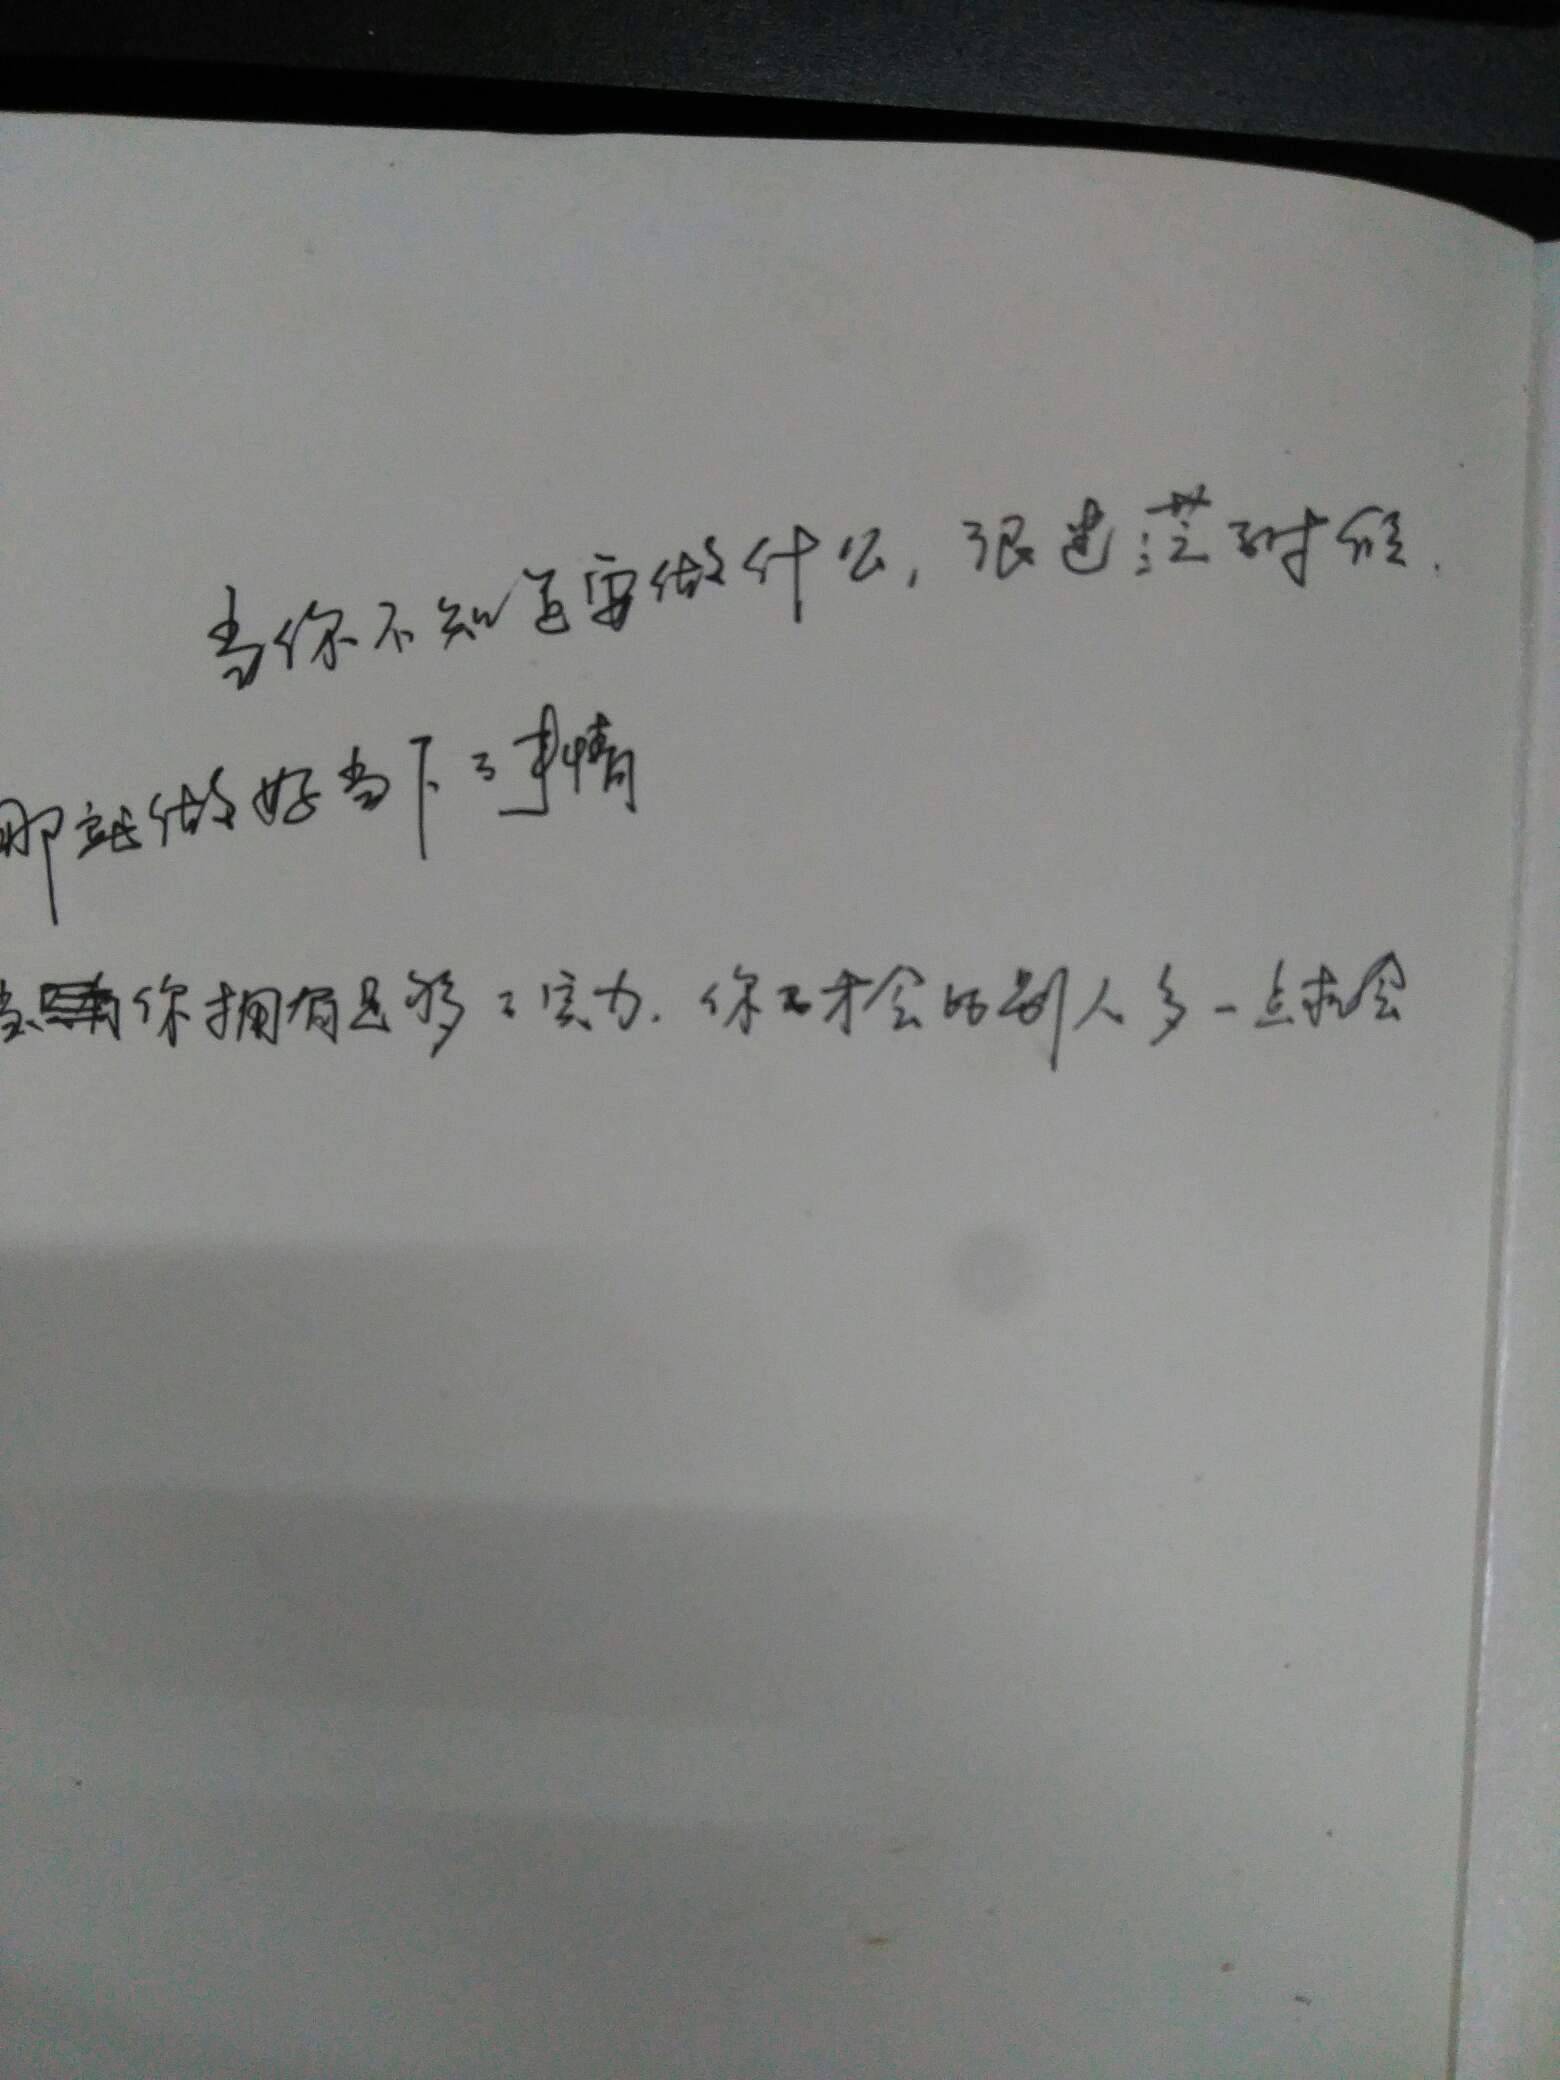 当你不知道要做什么，很迷茫时候.
那就做好当下了事情
当你拥有足够了实力.你才会的别人多一点机会